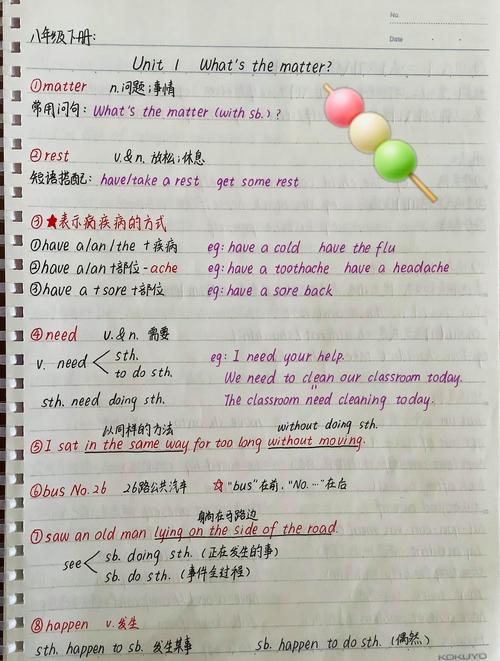 No.
Date
八年级下册:
Unit 1 What's the matter?
①matter n.问题;事情
常用问句: What's the matter (with sb.) ?
②rest v.& n. 放松;休息
短语搭配: have/take a rest get some rest
③★表示病疾病的方式
①have a/an/the +疾病 eg: have a cold have the flu
②have a/an+部位-ache eg: have a toothache have a headache
③have a +sore+部位 eg: have a sore back
④need v.& n. 需要
v. need sth. eg: I need your help.
to do sth. We need to clean our classroom today.
sth. need doing sth. The classroom need cleaning today.
以同样的方法 without doing sth.
⑤I sat in the same way for too long without moving.
⑥bus No.26 26路公共汽车 ☆"bus"在前,"No.…"在后
躺在马路边
⑦saw an old man lying on the side of the road.
see sb. doing sth. (正在发生的事)
sb. do sth. (事件全过程)
⑧happen v.发生
sth. happen to sb. 发生某事 sb. happen to do sth. (偶然)
KOKUYO